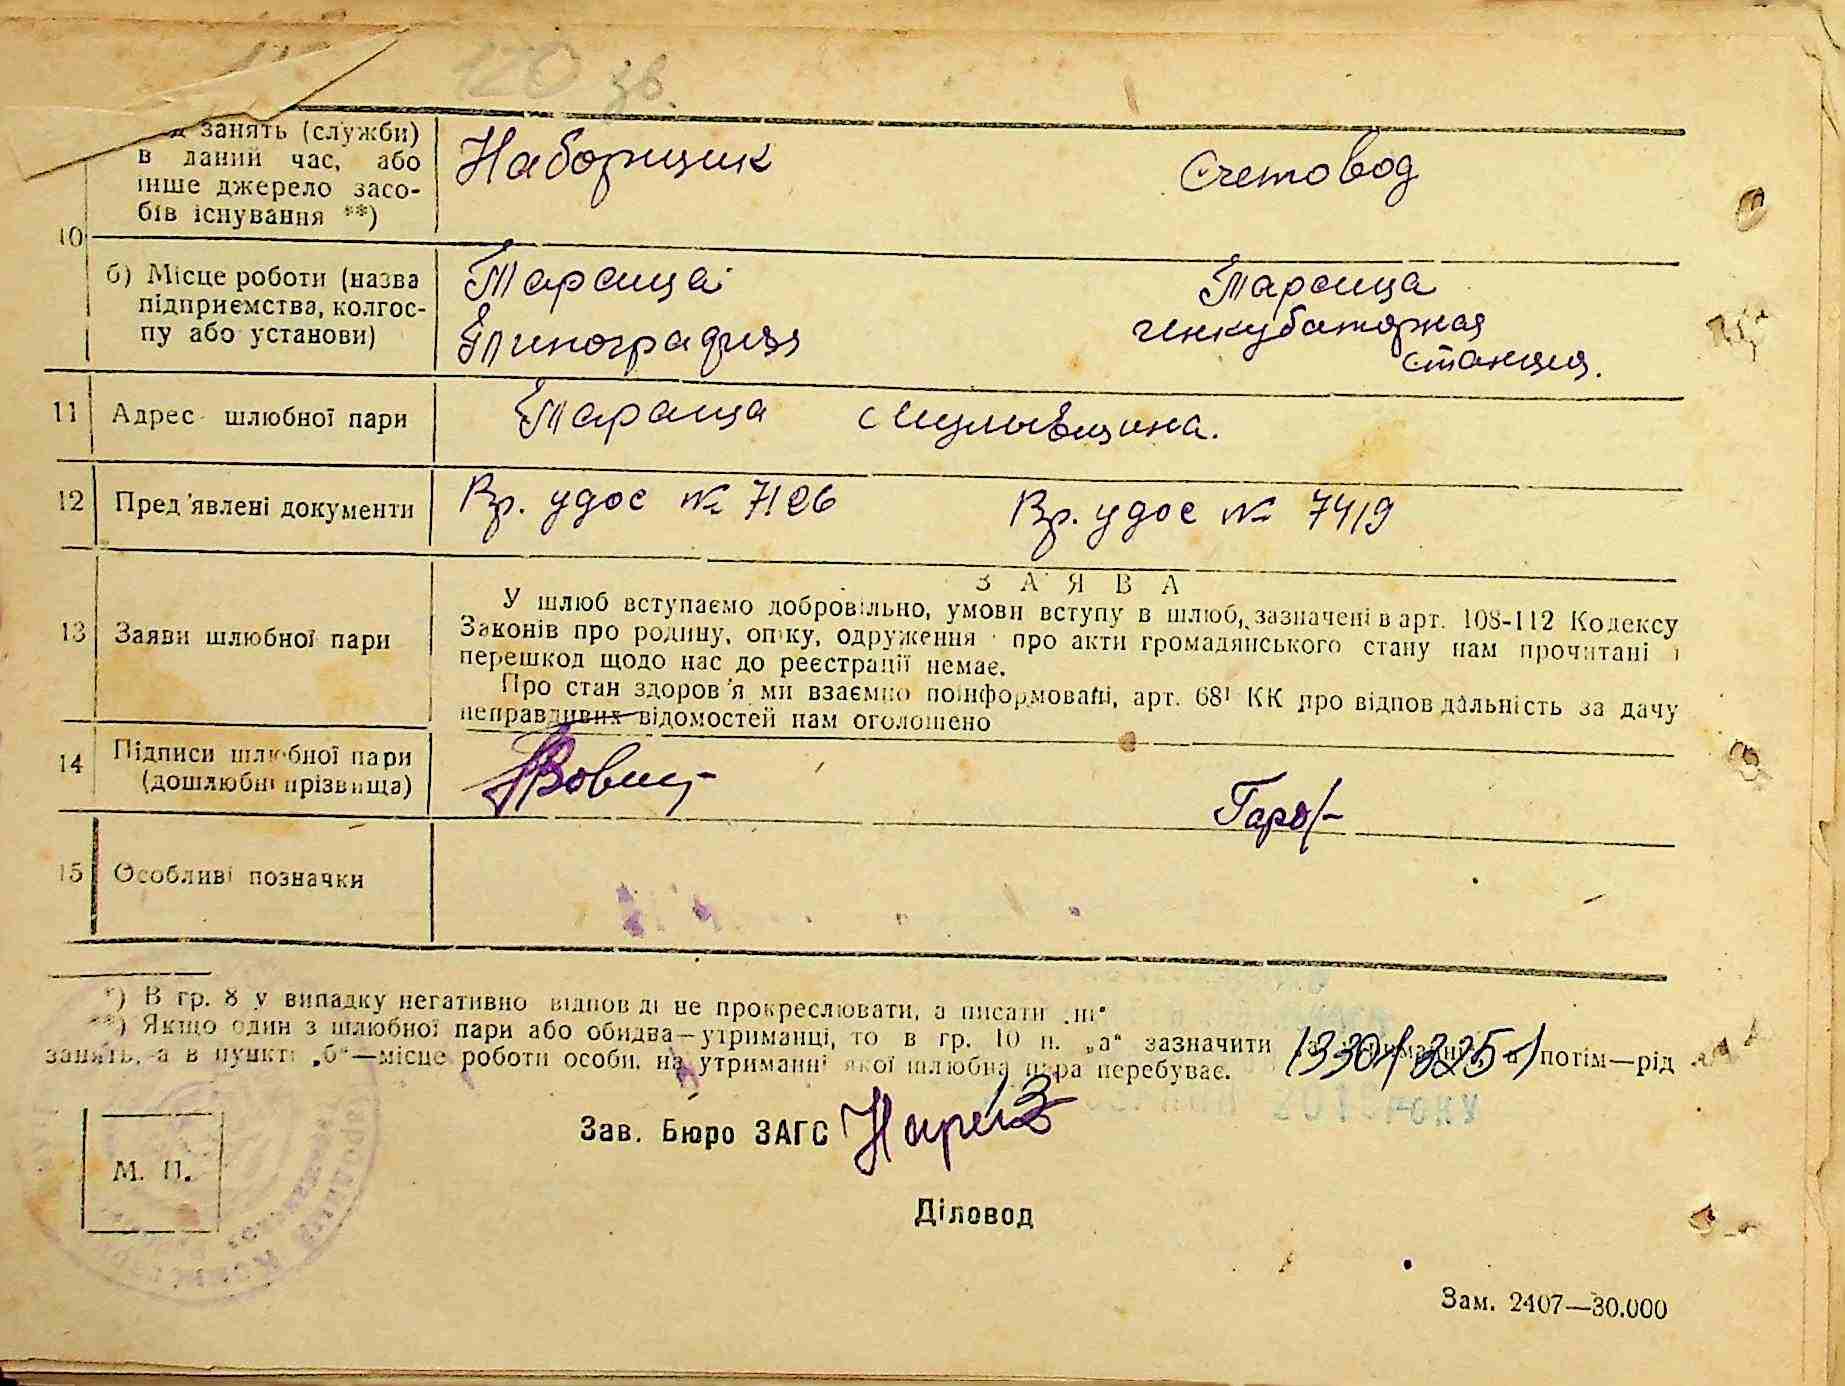 120 зв.
занять (служби)
в даний час, або
інше джерело засо-
бів існування **)
Наборщик
Счетовод
10
б) Місце роботи (назва
підприємства, колгос-
пу або установи)
Тараща
Типография
Тараща
инкубаторная
станция.
11 Адрес шлюбної пари
Тараща
12 Пред'явлені документи
Вр. удос № 7126
Вр. удос № 7419
13 Заяви шлюбної пари
ЗАЯВА
У шлюб вступаємо добровільно, умови вступу в шлюб, зазначені в арт. 108-112 Кодексу
Законів про родину, опіку, одруження і про акти громадянського стану нам прочитані і
перешкод щодо нас до реєстрації немає.
Про стан здоров'я ми взаємно поінформовані, арт. 68¹ КК про відповідальність за дачу
неправдивих відомостей нам оголошено
14 Підписи шлюбної пари
(дошлюбні прізвища)
15 Особливі позначки
*) В гр. 8 у випадку негативно відповіді не прокреслювати, а писати „ні“
**) Якщо один з шлюбної пари або обидва—утриманці, то в гр. 10 п. „а“ зазначити потім—рід
занять, а в пункті „б“—місце роботи особи, на утриманні якої шлюбна пара перебуває.
Зав. Бюро ЗАГС
М. П.
Діловод
Зам. 2407—30.000